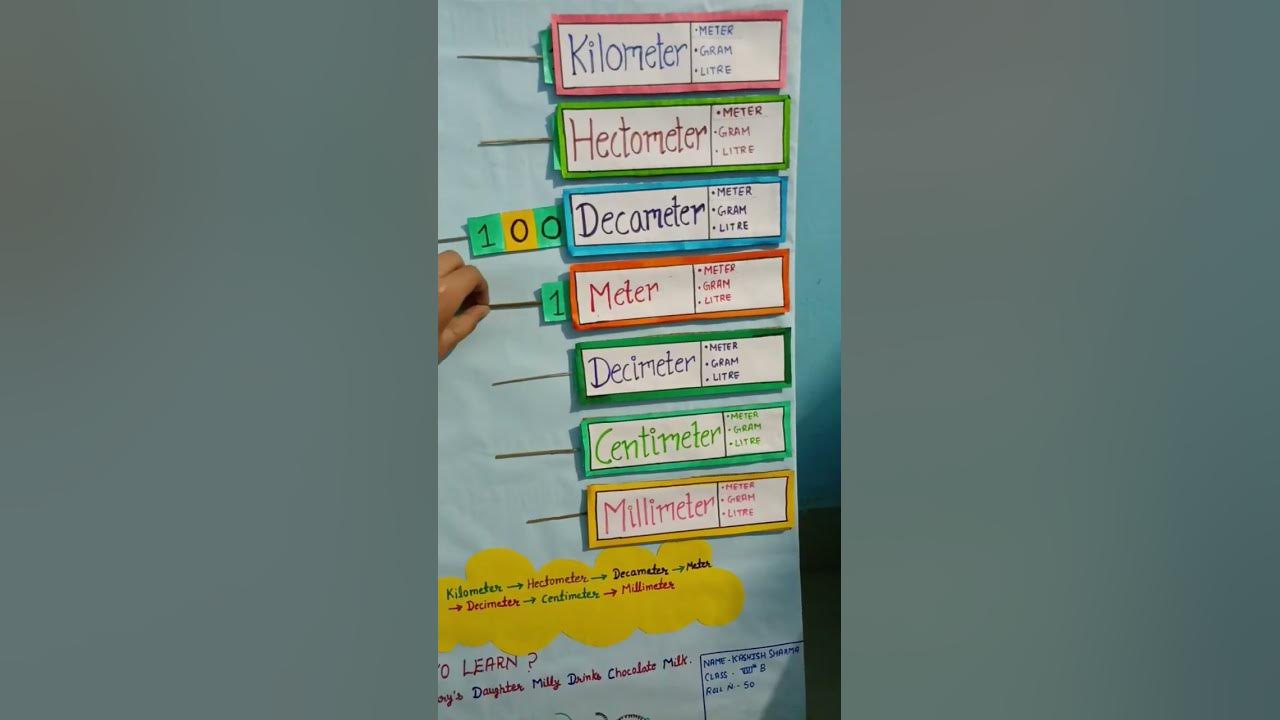 Kilometer
• METER
• GRAM
• LITRE
Hectometer
• METER
• GRAM
• LITRE
1 0 0
Decameter
• METER
• GRAM
• LITRE
1
Meter
• METER
• GRAM
• LITRE
Decimeter
• METER
• GRAM
• LITRE
Centimeter
• METER
• GRAM
• LITRE
Millimeter
• METER
• GRAM
• LITRE
Kilometer → Hectometer → Decameter → Meter
→ Decimeter → Centimeter → Millimeter
O LEARN ?
ory's Daughter Milly Drinks Chocolate Milk.
NAME - KASHISH SHARMA
CLASS - B
ROLL N - 50